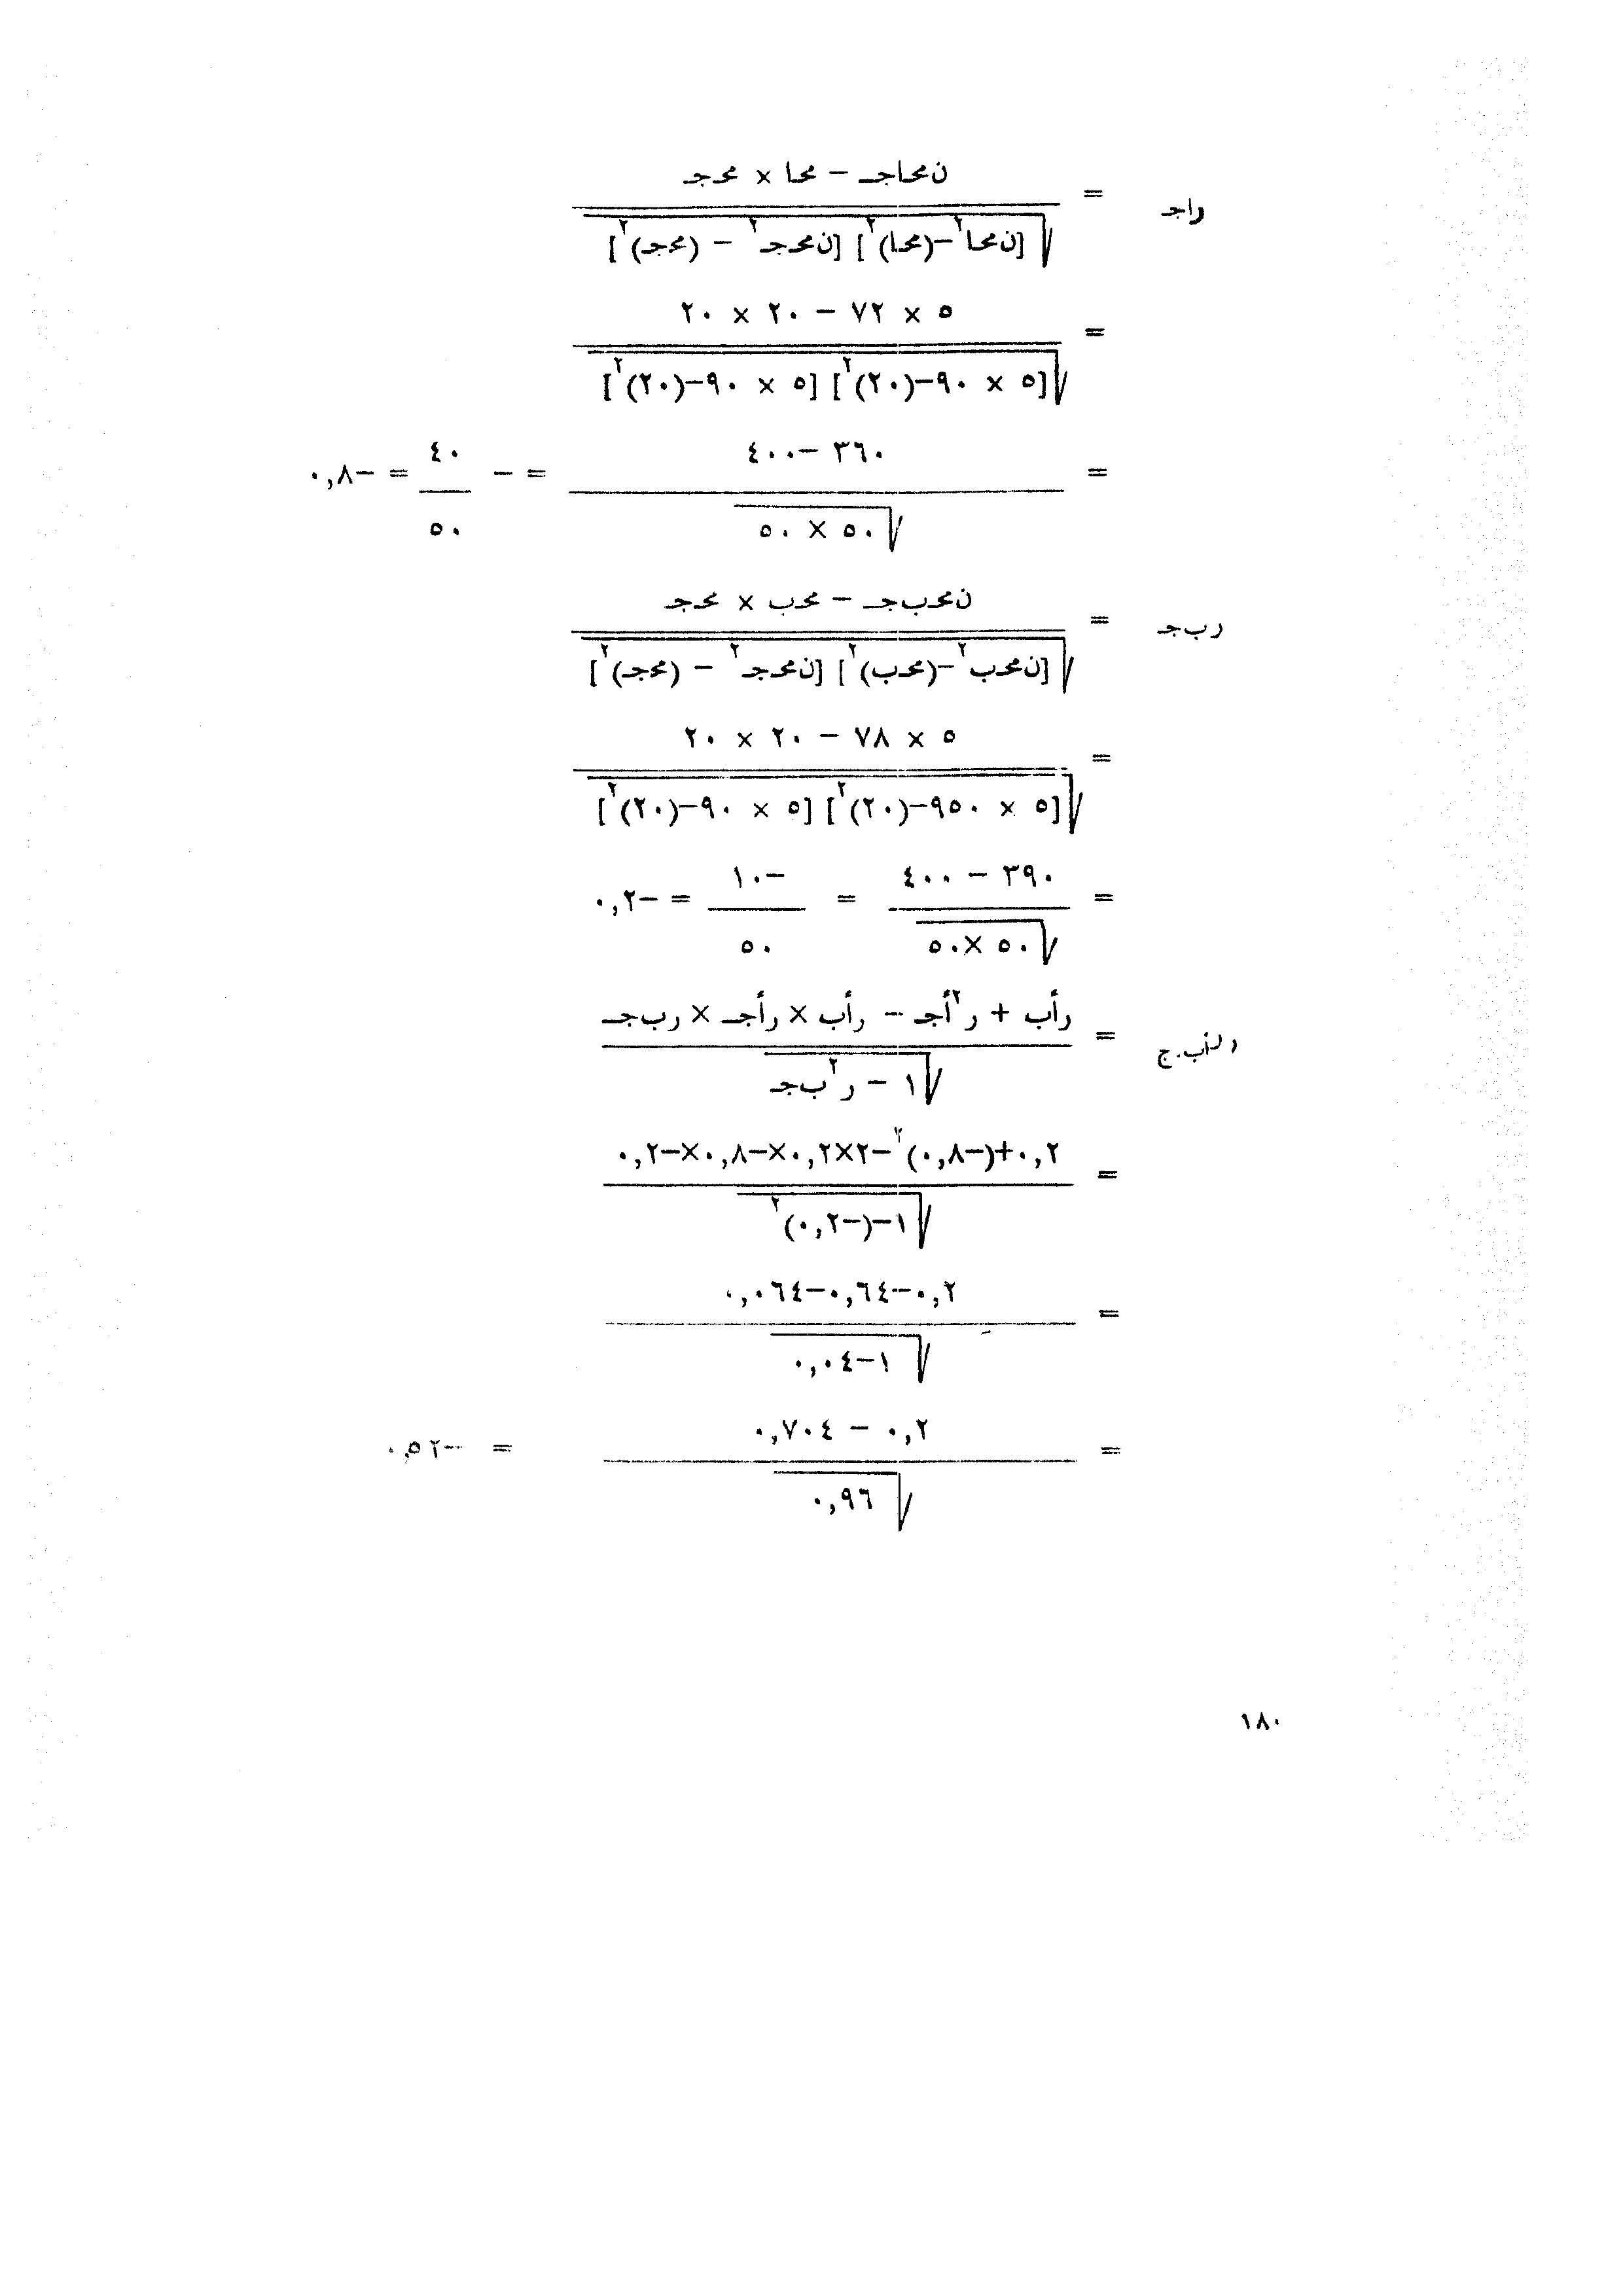 راجـ = ن محـاجـ − محـا × محـجـ
√[ن محـا٢−(محـا)٢] [ن محـجـ٢ − (محـجـ)٢]
= ٥ × ٧٢ − ٢٠ × ٢٠
√[٥ × ٩٠−(٢٠)٢] [٥ × ٩٠−(٢٠)٢]
= ٣٦٠ −٤٠٠ = − ٤٠ = −٠,٨
√٥٠ × ٥٠ ٥٠
ر ب جـ = ن محـب جـ − محـب × محـجـ
√[ن محـب٢−(محـب)٢] [ن محـجـ٢ − (محـجـ)٢]
= ٥ × ٧٨ − ٢٠ × ٢٠
√[٥ × ٩٥٠−(٢٠)٢] [٥ × ٩٠−(٢٠)٢]
= ٣٩٠ − ٤٠٠ = −١٠ = −٠,٢
√٥٠ ×٥٠ ٥٠
ر أب.ج = رأب + ر٢أجـ − رأب × رأجـ × رب جـ
√١ − ر٢ب جـ
= ٠,٢+(−٠,٨)٢−٢×٠,٢×−٠,٨×−٠,٢
√١−(−٠,٢)٢
= ٠,٢−٠,٦٤−٠,٠٦٤
√١−٠,٠٤
= ٠,٢ − ٠,٧٠٤ = −٠,٥٢
√٠,٩٦
١٨٠